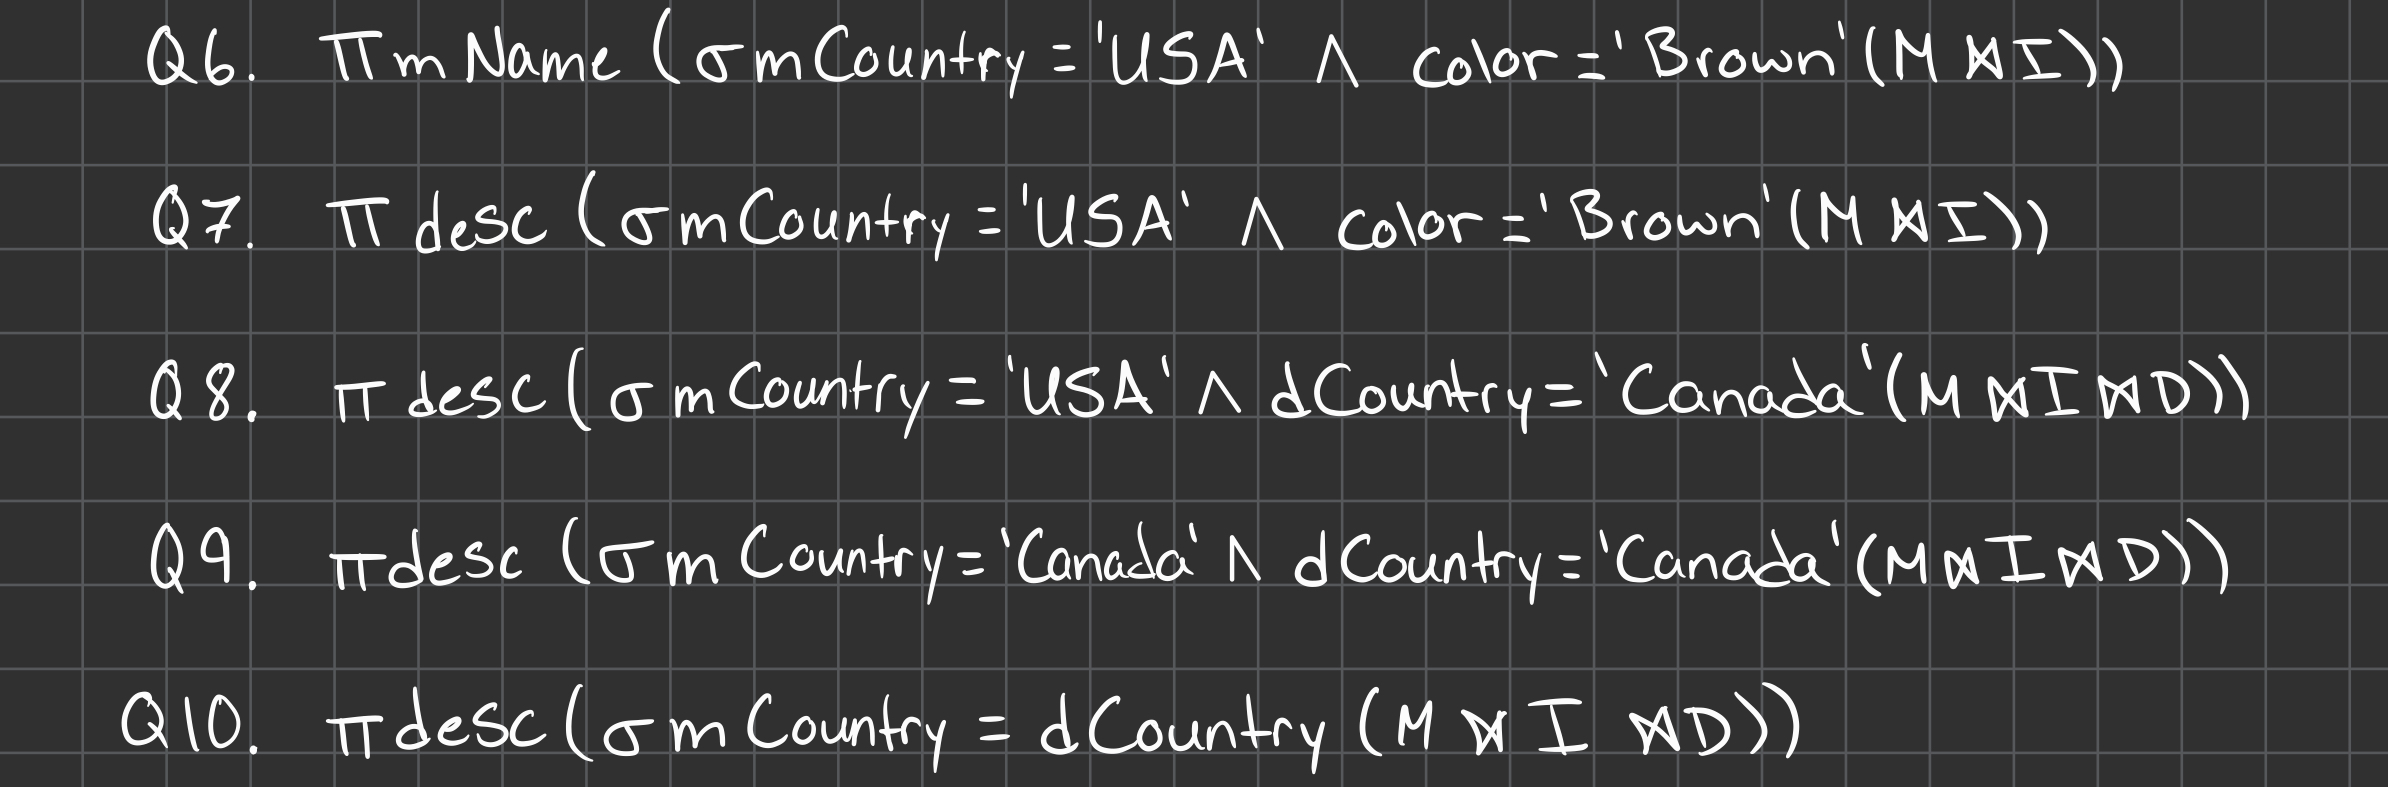 Q6. π mName (σ mCountry = 'USA' ∧ color = 'Brown' (M ⋈ I))
Q7. π desc (σ mCountry = 'USA' ∧ color = 'Brown' (M ⋈ I))
Q8. π desc (σ mCountry = 'USA' ∧ dCountry = 'Canada' (M ⋈ I ⋈ D))
Q9. π desc (σ mCountry = 'Canada' ∧ dCountry = 'Canada' (M ⋈ I ⋈ D))
Q10. π desc (σ mCountry = dCountry (M ⋈ I ⋈ D))